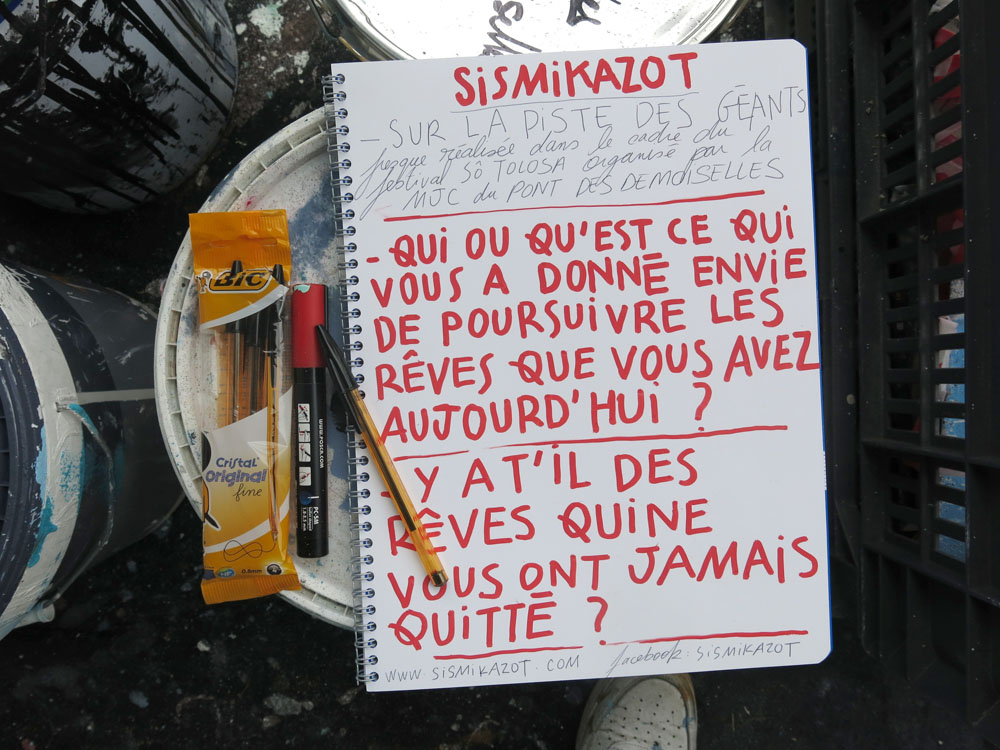 SiSMiKAZOT
- SUR LA PiSTE DES GĒANTS
fresque réalisée dans le cadre du
festival SŌ TOLOSA organisé par la
MJC du PONT DES DEMOiSELLES
- QUi OU QU'EST CE QUi
VOUS A DONNĒ ENVIE
DE POURSUiVRE LES
RÊVES QUE VOUS AVEZ
AUJOURD'HUi ?
- Y A T'iL DES
RÊVES QUiNE
VOUS ONT JAMAiS
QUiTTĒ ?
WWW.SiSMiKAZOT.COM facebook: SiSMiKAZOT
BIC
Cristal
Original
fine
0.8mm
WWW.POSCA.COM
PC-5M